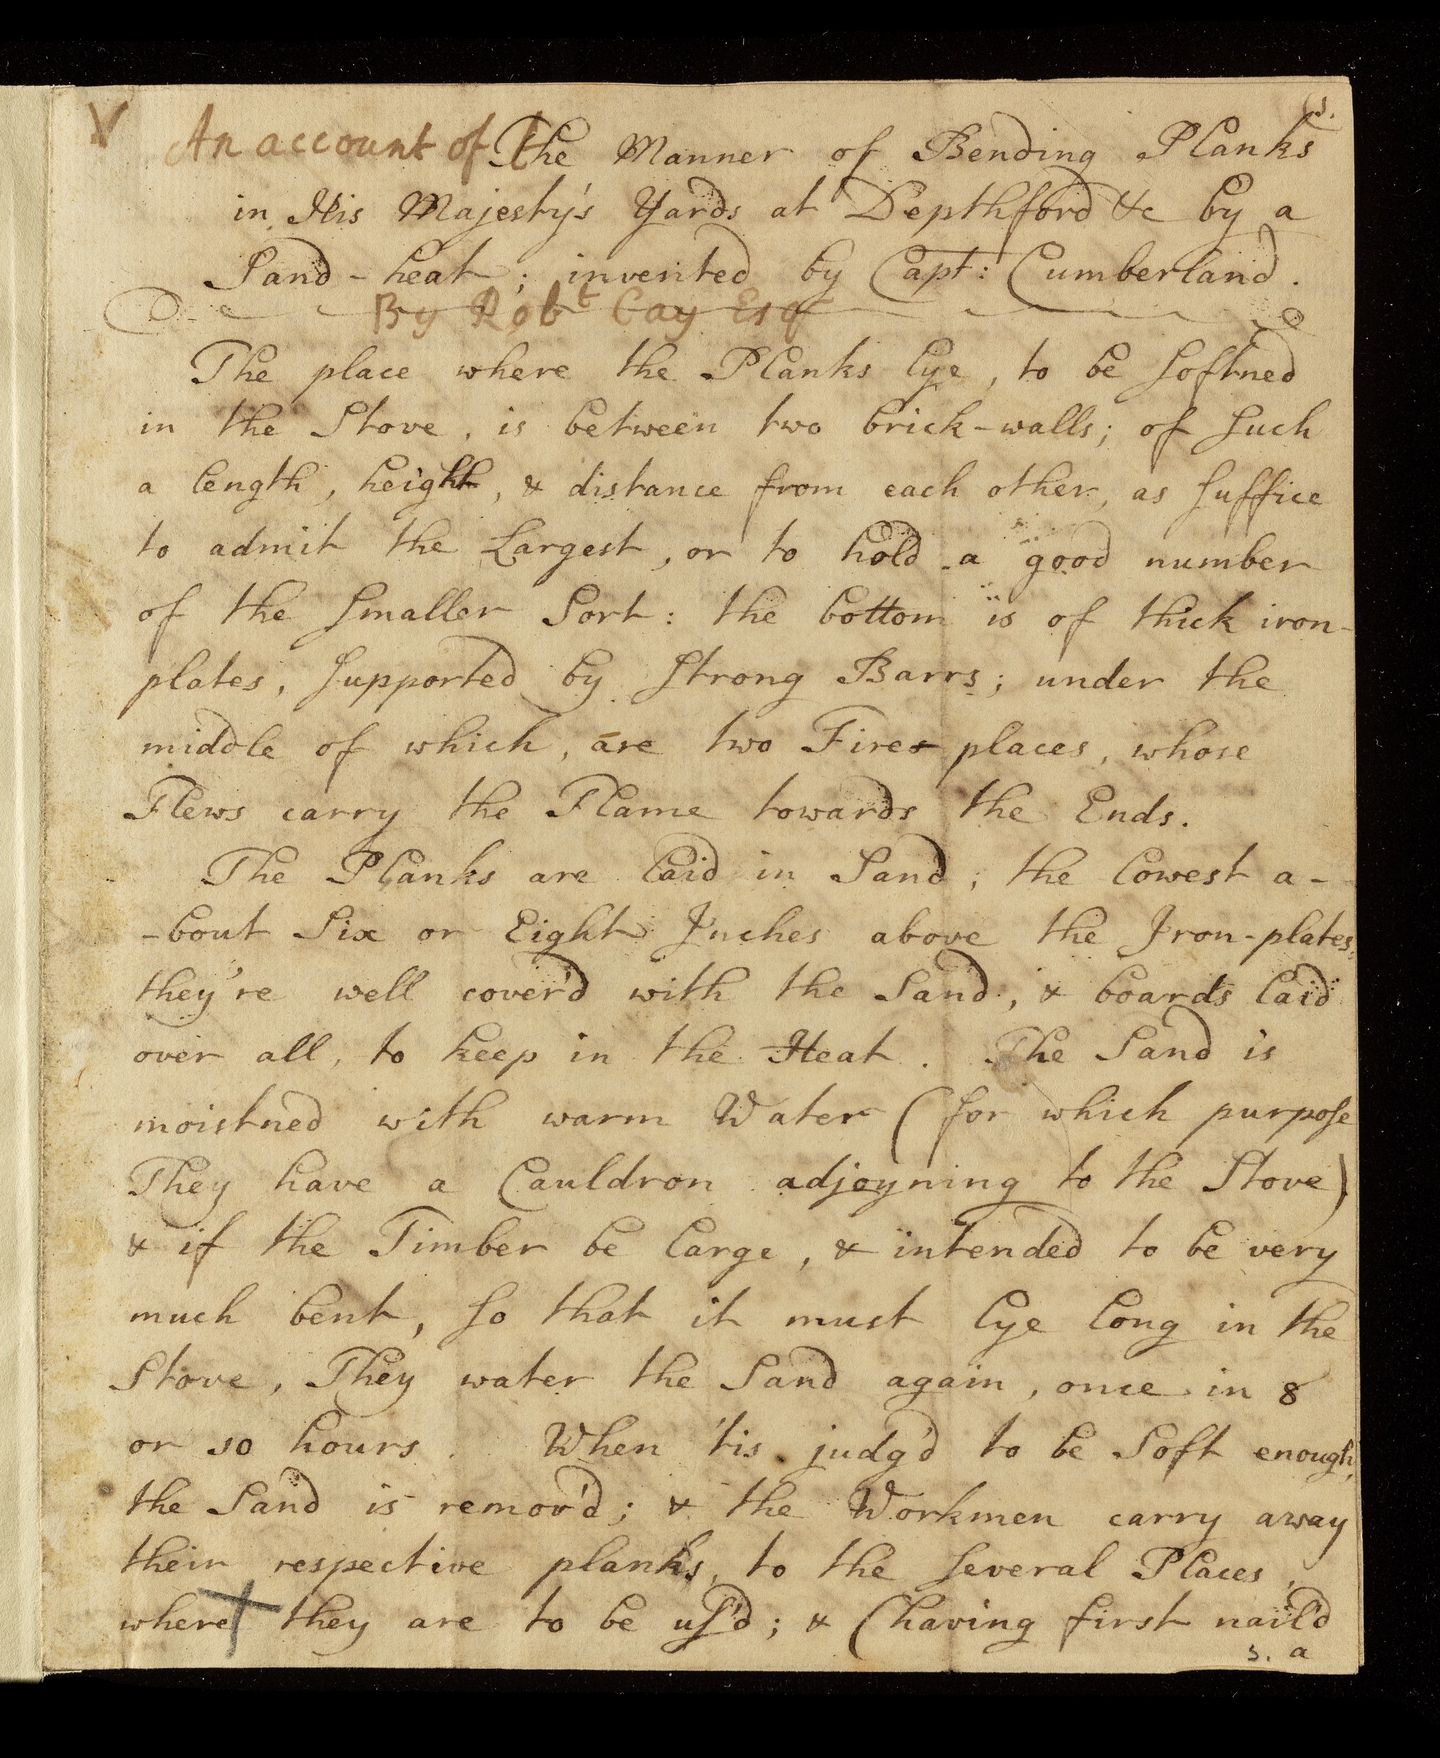 An account of The Manner of Bending Planks
in His Majesty's Yards at Depthford &c by a
Sand-heat; invented by Capt: Cumberland.
By Robt Cay Esqr
The place where the Planks lye, to be softned
in the Stove, is between two brick-walls; of such
a length, height, & distance from each other, as suffice
to admit the Largest, or to hold a good number
of the smaller Sort: the bottom is of thick iron-
plates, supported by strong Barrs; under the
middle of which, are two Fire places, whose
Flews carry the Flame towards the Ends.
The Planks are laid in Sand; the lowest a-
-bout Six or Eight Inches above the Iron-plates;
they're well cover'd with the Sand, & boards laid
over all, to keep in the Heat. The Sand is
moistned with warm Water (for which purpose
They have a Cauldron adjoyning to the Stove)
& if the Timber be large, & intended to be very
much bent, so that it must lye long in the
Stove, They water the Sand again, once in 8
or 10 hours. When 'tis judg'd to be Soft enough,
the Sand is remov'd; & the Workmen carry away
their respective planks, to the several Places,
where they are to be us'd; & (having first nail'd
a